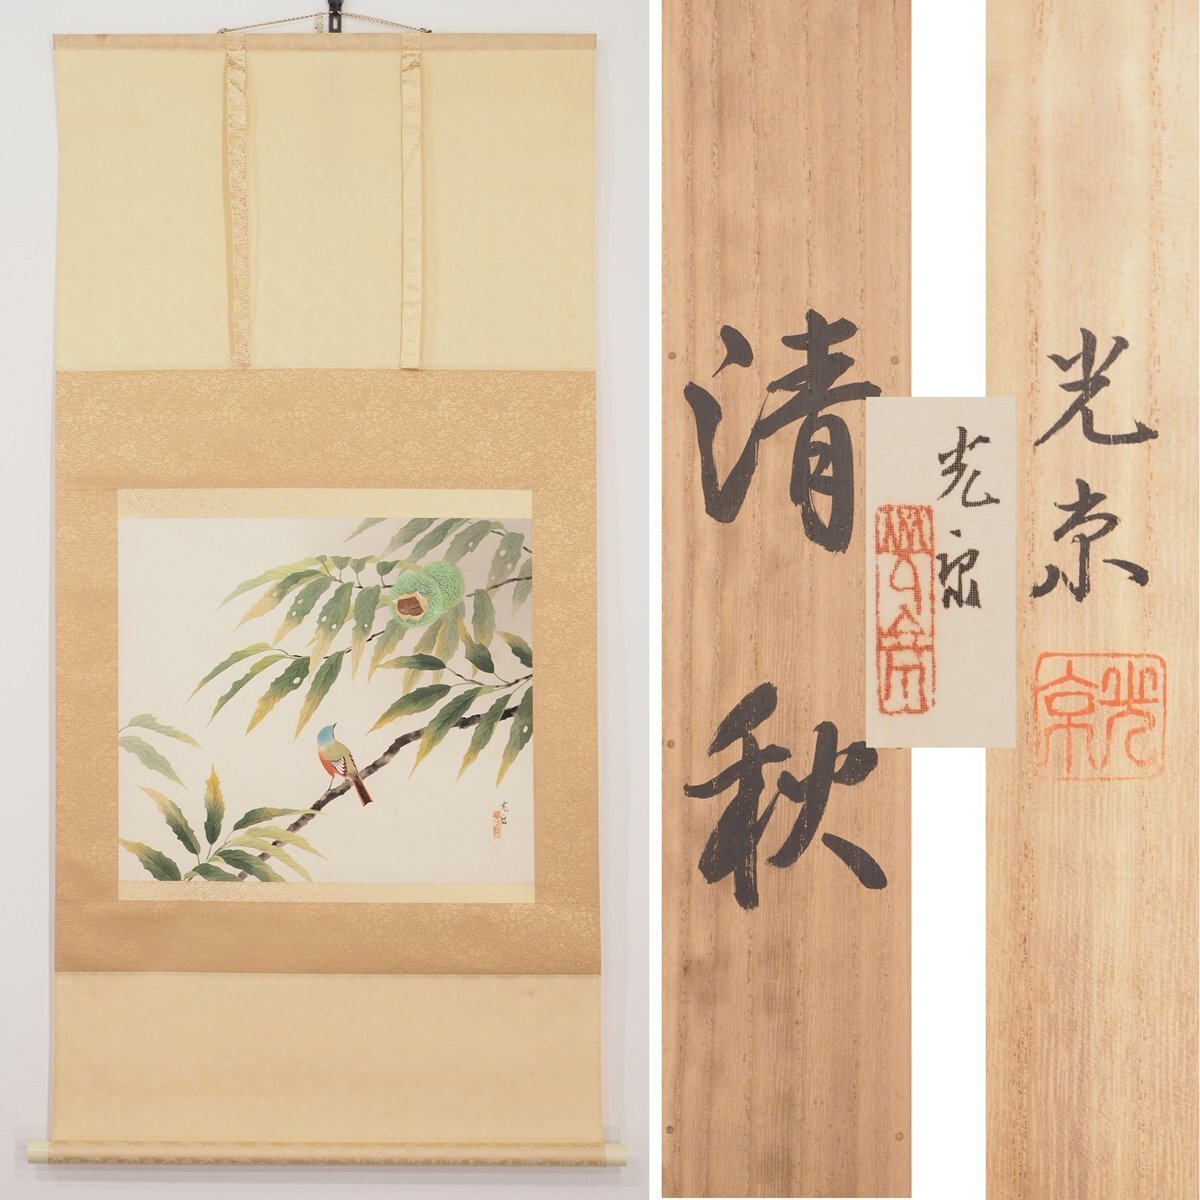 清秋
光京
光京
光京
光京